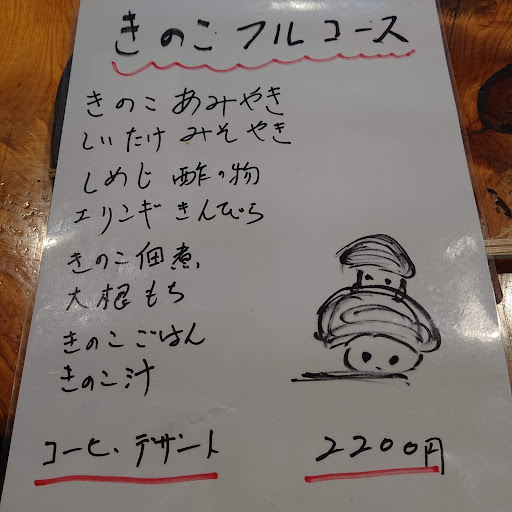 きのこフルコース
きのこ あみやき
しいたけ みそやき
しめじ 酢の物
エリンギ きんぴら
きのこ佃煮
大根もち
きのこごはん
きのこ汁
コーヒ、デザート
2200円